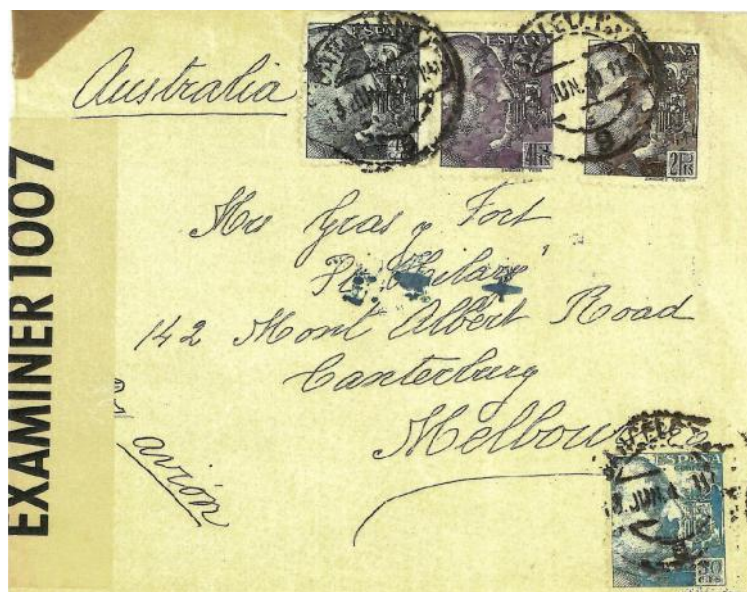 Australia
ESPAÑA
ESPAÑA
4 PTS
ESPAÑA
2 PTS
JUN.
EXAMINER 1007
Mrs Gras y Fort
142 Mont Albert Road
Canterbury
Melbourne
avión
BARCELONA
ESPAÑA
JUN.
30
CTS